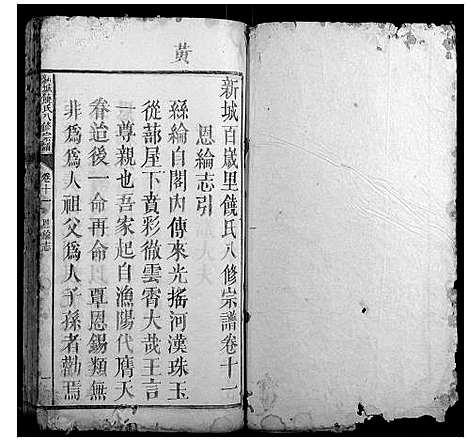 黄
新城百歲里饒氏八修宗譜卷十一
恩綸志引
絲綸自閣內傳來光搖河漢珠玉
從蔀屋下賁彩徹雲霄大哉王言
一尊親也吾家起自漁陽代膺天
眷迨後一命再命覃恩錫類無
非爲爲人祖父爲人子孫者勸焉
新城饒氏八修宗譜
卷十一
恩綸志
一